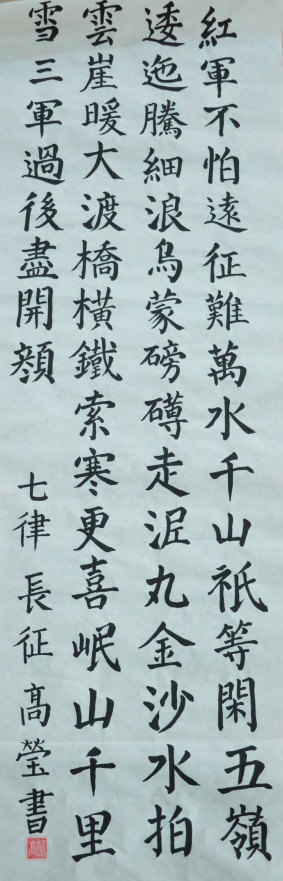 紅軍不怕遠征難萬水千山祇等閑五嶺
逶迤騰細浪烏蒙磅礴走泥丸金沙水拍
雲崖暖大渡橋橫鐵索寒更喜岷山千里
雪三軍過後盡開顏
七律長征高瑩書